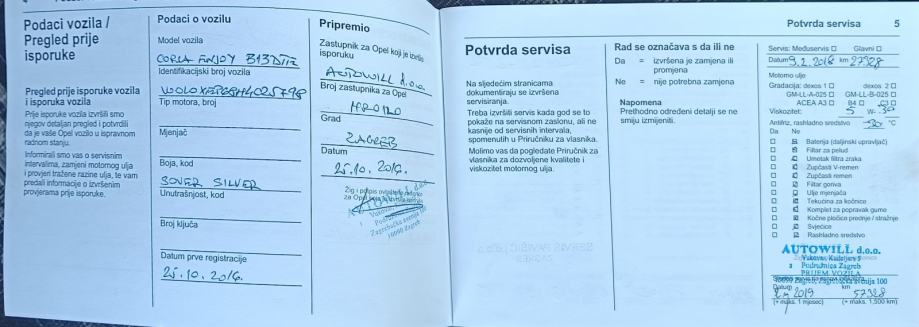 Podaci vozila /
Pregled prije
isporuke
Pregled prije isporuke vozila
i isporuka vozila
Prije isporuke vozila izvršili smo
njegov detaljan pregled i potvrdili
da je vaše Opel vozilo u ispravnom
radnom stanju.
Informirali smo vas o servisnim
intervalima, zamjeni motornog ulja
i provjeri tražene razine ulja, te vam
predali informacije o izvršenim
provjerama prije isporuke.
Podaci o vozilu
Model vozila
CORSA ENJOY B13DTE
Identifikacijski broj vozila
Tip motora, broj
Mjenjač
Boja, kod
SOVER SILVER
Unutrašnjost, kod
Broj ključa
Datum prve registracije
25.10.2016.
Pripremio
Zastupnik za Opel koji je izvršio
isporuku
AUTOWILL d.o.o.
Broj zastupnika za Opel
Grad
ZAGREB
Datum
25.10.2016.
Potvrda servisa
Na sljedećim stranicama
dokumentiraju se izvršena
servisiranja.
Treba izvršiti servis kada god se to
pokaže na servisnom zaslonu, ali ne
kasnije od servisnih intervala,
spomenutih u Priručniku za vlasnika.
Molimo vas da pogledate Priručnik za
vlasnika za dozvoljene kvalitete i
viskozitet motornog ulja.
Rad se označava s da ili ne
Da = izvršena je zamjena ili
promjena
Ne = nije potrebna zamjena
Napomena
Prethodno određeni detalji se ne
smiju izmijeniti.
Potvrda servisa 5
Servis: Međuservis Glavni
Datum 9.2.2018 km 27328
Motorno ulje
Gradacija: dexos 1 dexos 2
GM-LL-A-025 GM-LL-B-025
ACEA A3 B4 C3
Viskozitet: 5 W- 30
Antifriz, rashladno sredstvo -30 °C
Da Ne
Baterija (daljinski upravljač)
Filtar za pelud
Umetak filtra zraka
Zupčasti V-remen
Zupčasti remen
Filtar goriva
Ulje mjenjača
Tekućina za kočnice
Komplet za popravak gume
Kočne pločice prednje / stražnje
Svjećice
Rashladno sredstvo
AUTOWILL d.o.o.
Podružnica Zagreb
PRIJEM VOZILA
Datum km
2019 57328
(+ maks. 1 mjesec) (+ maks. 1.500 km)